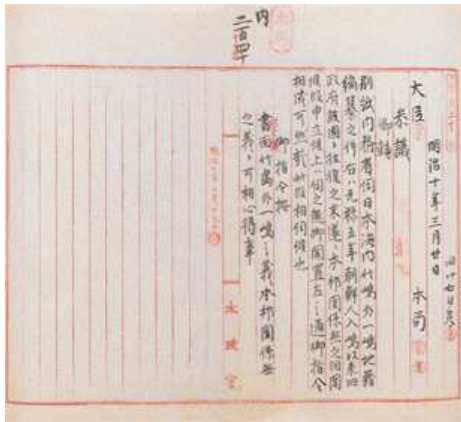 明治十年三月廿日
大臣 本局
参議
卿輔
別紙内務省伺日本海内竹嶋外一嶋地籍
編纂之件右ハ元禄五年朝鮮人入嶋以来旧
政府該国ト往復之末遂ニ本邦関係無之相聞
候段申立候上ハ伺之趣御聞置左之通御指令
相成可然哉此段相伺候也
御指令按
書面竹嶋外一嶋之義本邦関係無
之義ト可相心得事
内
太政官